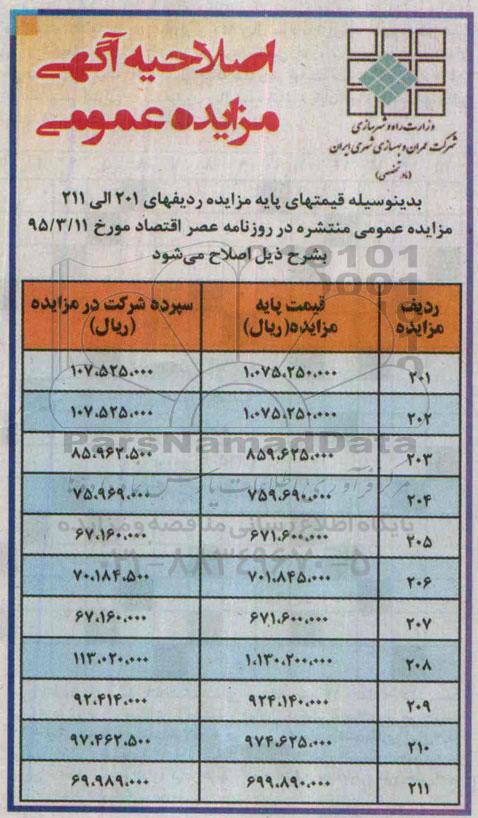 اصلاحیه آگهی
مزایده عمومی
وزارت راه و شهرسازی
شرکت عمران و بهسازی شهری ایران
(مادر تخصصی)
بدینوسیله قیمتهای پایه مزایده ردیفهای ۲۰۱ الی ۲۱۱
مزایده عمومی منتشره در روزنامه عصر اقتصاد مورخ ۹۵/۳/۱۱
بشرح ذیل اصلاح می‌شود
ردیف مزایده | قیمت پایه مزایده(ریال) | سپرده شرکت در مزایده (ریال)
۲۰۱ | ۱.۰۷۵.۲۵۰.۰۰۰ | ۱۰۷.۵۲۵.۰۰۰
۲۰۲ | ۱.۰۷۵.۲۵۰.۰۰۰ | ۱۰۷.۵۲۵.۰۰۰
۲۰۳ | ۸۵۹.۶۲۵.۰۰۰ | ۸۵.۹۶۲.۵۰۰
۲۰۴ | ۷۵۹.۶۹۰.۰۰۰ | ۷۵.۹۶۹.۰۰۰
۲۰۵ | ۶۷۱.۶۰۰.۰۰۰ | ۶۷.۱۶۰.۰۰۰
۲۰۶ | ۷۰۱.۸۴۵.۰۰۰ | ۷۰.۱۸۴.۵۰۰
۲۰۷ | ۶۷۱.۶۰۰.۰۰۰ | ۶۷.۱۶۰.۰۰۰
۲۰۸ | ۱.۱۳۰.۲۰۰.۰۰۰ | ۱۱۳.۰۲۰.۰۰۰
۲۰۹ | ۹۲۴.۱۴۰.۰۰۰ | ۹۲.۴۱۴.۰۰۰
۲۱۰ | ۹۷۴.۶۲۵.۰۰۰ | ۹۷.۴۶۲.۵۰۰
۲۱۱ | ۶۹۹.۸۹۰.۰۰۰ | ۶۹.۹۸۹.۰۰۰
ParsNamadData
پایگاه اطلاع رسانی مناقصه و مزایده
۰۲۱-۸۸۳۴۹۶۷۰-۵